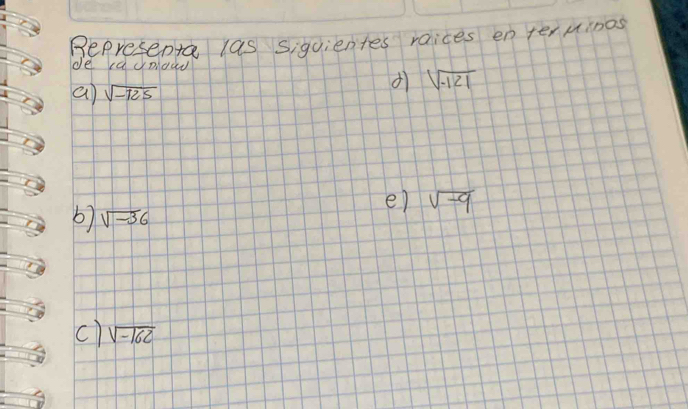 Representa las siguientes raices en terminos
de la unidad
a) √-125
d) √-121
b) √-36
e) √-9
c) √-162